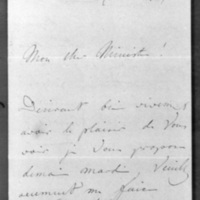 Mon cher Ministre!
Désirant bien vivement
avoir le plaisir de Vous
voir je Vous propose
demain mardi, Veuillez
me faire